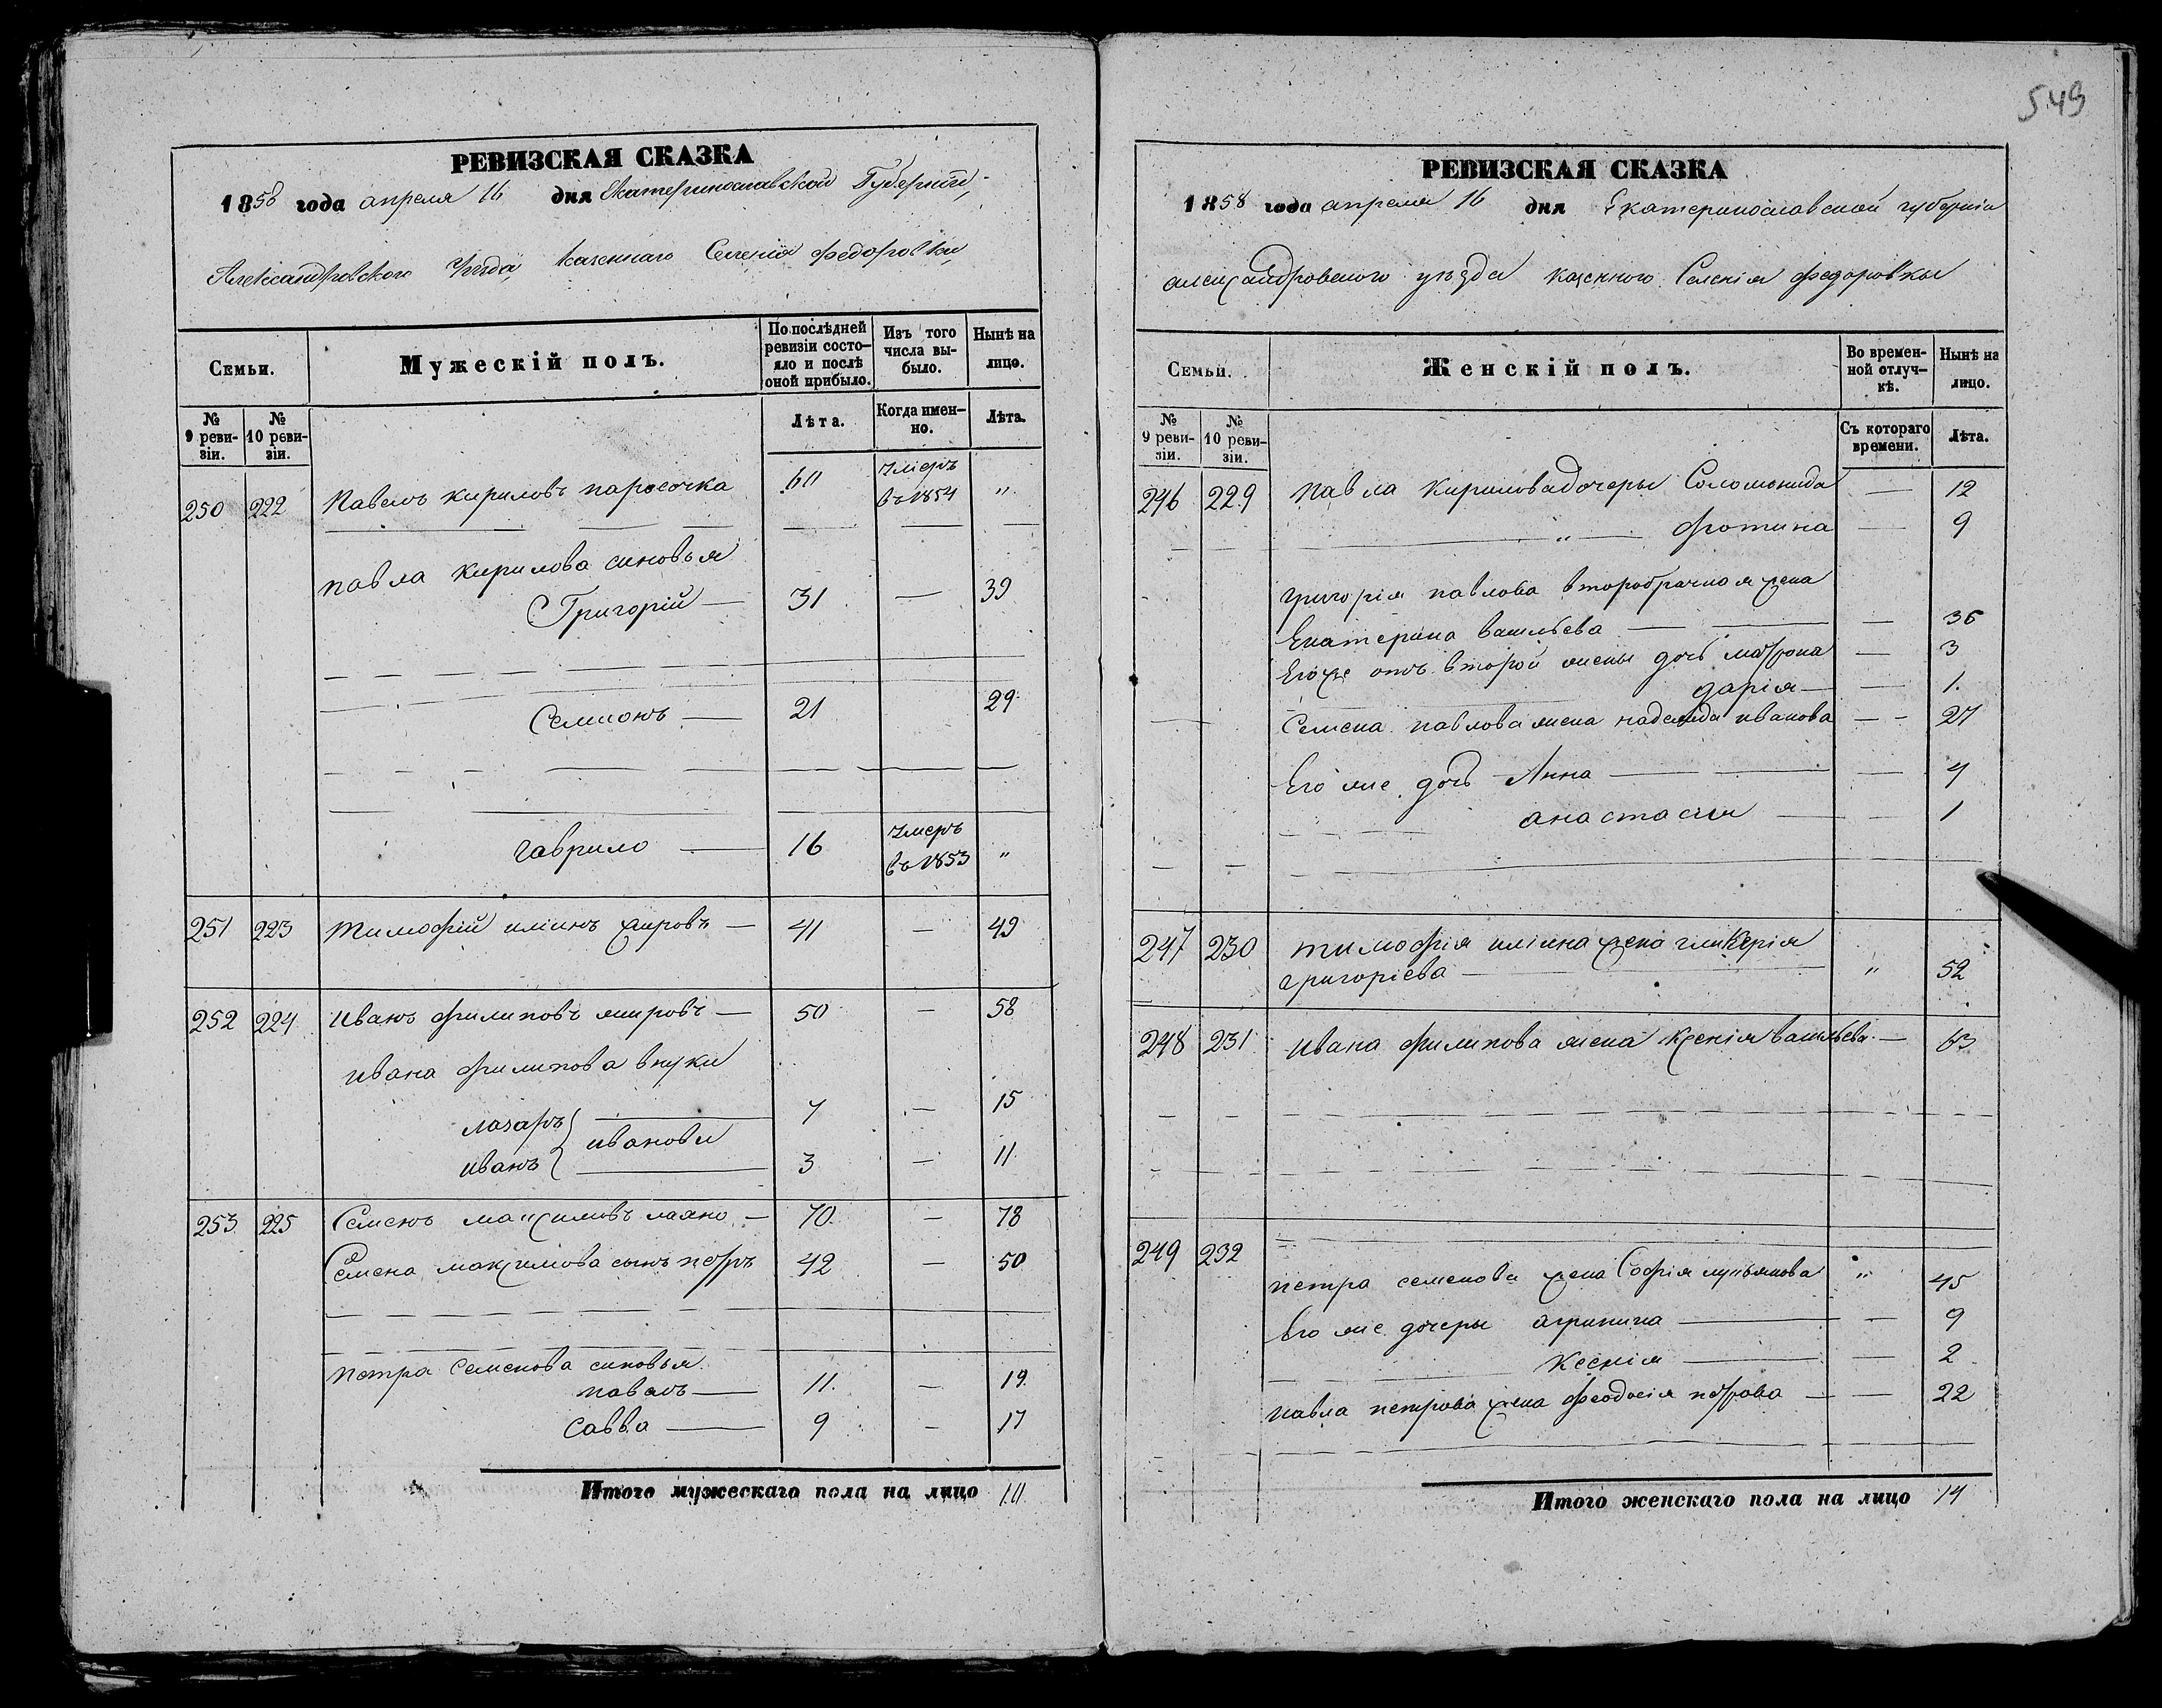 549
РЕВИЗСКАЯ СКАЗКА
1858 года апреля 16 дня Екатеринославской Губерніи,
Александровского Уѣзда, Казеннаго Селенія Федоровки
Семьи.
Мужескій полъ.
По послѣдней ревизіи состояло и послѣ оной прибыло.
Изъ того числа выбыло.
Нынѣ на лицо.
№ 9 ревизіи.
№ 10 ревизіи.
Лѣта.
Когда именно.
Лѣта.
250 222 Павелъ кириловъ паросочка 60 умеръ въ 1854 "
павла кирилова синовья
Григорій — 31 — 39
Семионъ — 21 29
гаврило — 16 умеръ въ 1853 "
251 223 тимофій иліинъ жировъ — 41 — 49
252 224 Иванъ филиповъ жировъ — 50 — 58
ивана филипова внуки
лазаръ 7 — 15
иванови
иванъ 3 — 11
253 225 Семенъ максимовъ лахно — 70 — 78
Семена максимова сынъ петръ 42 — 50
петра семенова синовья
павелъ — 11 — 19
савва — 9 — 17
Итого мужескаго пола на лицо 10
РЕВИЗСКАЯ СКАЗКА
1858 года апреля 16 дня Екатеринославской губерніи
александровского уѣзда казенного Селенія федоровки
Семьи.
Женскій полъ.
Во временной отлучкѣ.
Нынѣ на лицо.
№ 9 ревизіи.
№ 10 ревизіи.
Съ котораго времени.
Лѣта.
246 229 павла кирилова дочеры Соломонида — 12
" — фотина — 9
григорія павлова второбрачная жена
Екатерина васильева — 36
Егоже отъ второй жены дочь матрона — 3
дарія — 1
Семена павлова жена надежда иванова — 27
Его же дочь Анна — 4
анастасія — 1
247 230 тимофія иліина жена гликерія
григоріева — " 52
248 231 ивана филипова жена ксенія васильева — 63
249 232
петра семенова жена Софія лукьянова " 45
Его же дочеры агрипина — 9
ксенія — 2
павла петрова жена феодосія петрова — 22
Итого женскаго пола на лицо 14